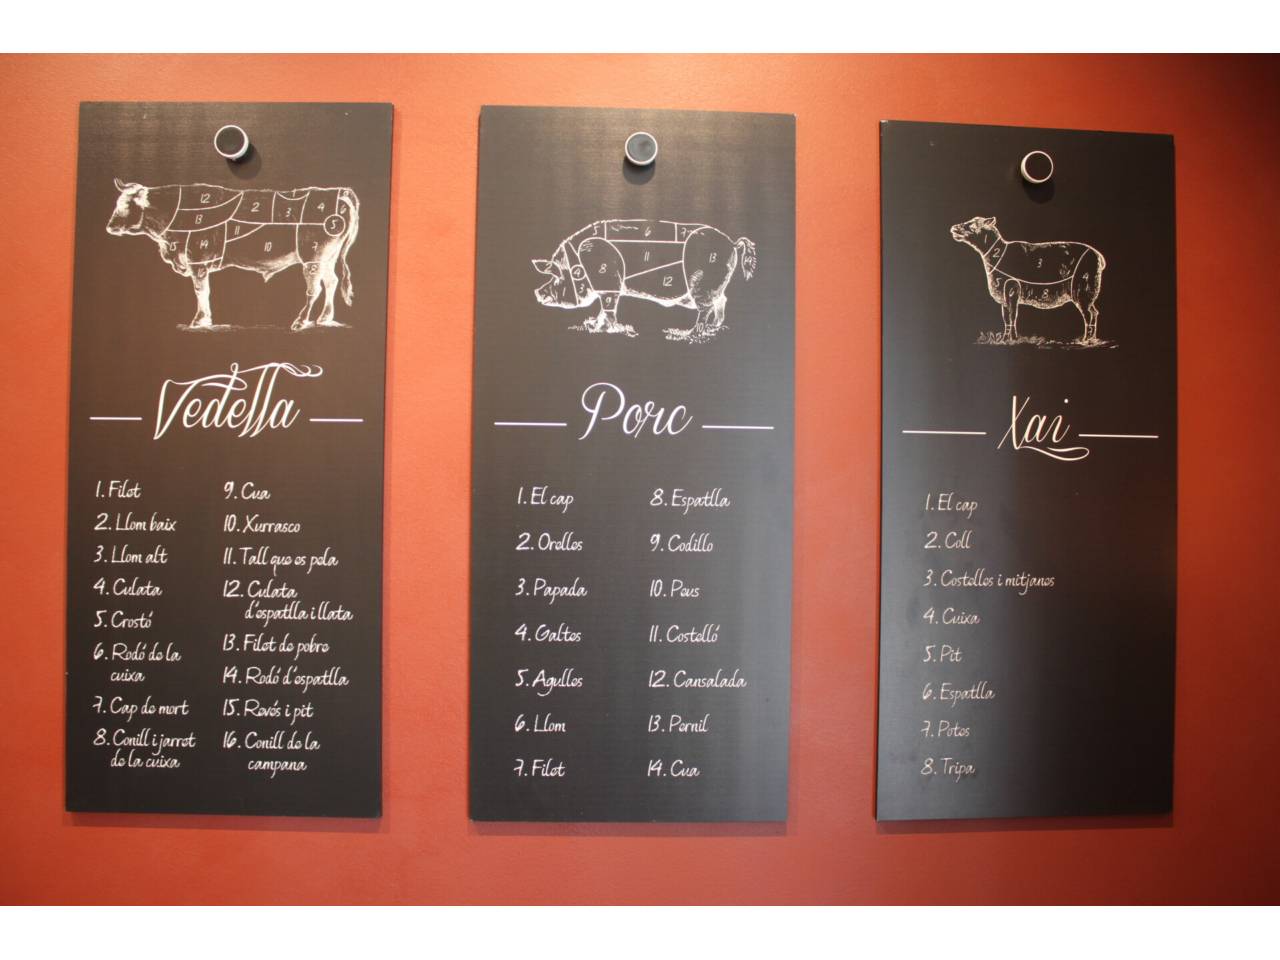 Vedella
1. Filet
2. Llom baix
3. Llom alt
4. Culata
5. Crostó
6. Rodó de la
cuixa
7. Cap de mort
8. Conill i jarret
de la cuixa
9. Cua
10. Xurrasco
11. Tall que es pela
12. Culata
d'espatlla i llata
13. Filet de pobre
14. Rodó d'espatlla
15. Revés i pit
16. Conill de la
campana
Porc
1. El cap
2. Orelles
3. Papada
4. Galtes
5. Agulles
6. Llom
7. Filet
8. Espatlla
9. Codillo
10. Peus
11. Costelló
12. Cansalada
13. Pernil
14. Cua
Xai
1. El cap
2. Coll
3. Costelles i mitjanes
4. Cuixa
5. Pit
6. Espatlla
7. Potes
8. Tripa